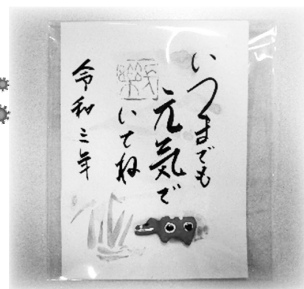 いつまでも
元気で
いてね
令和三年